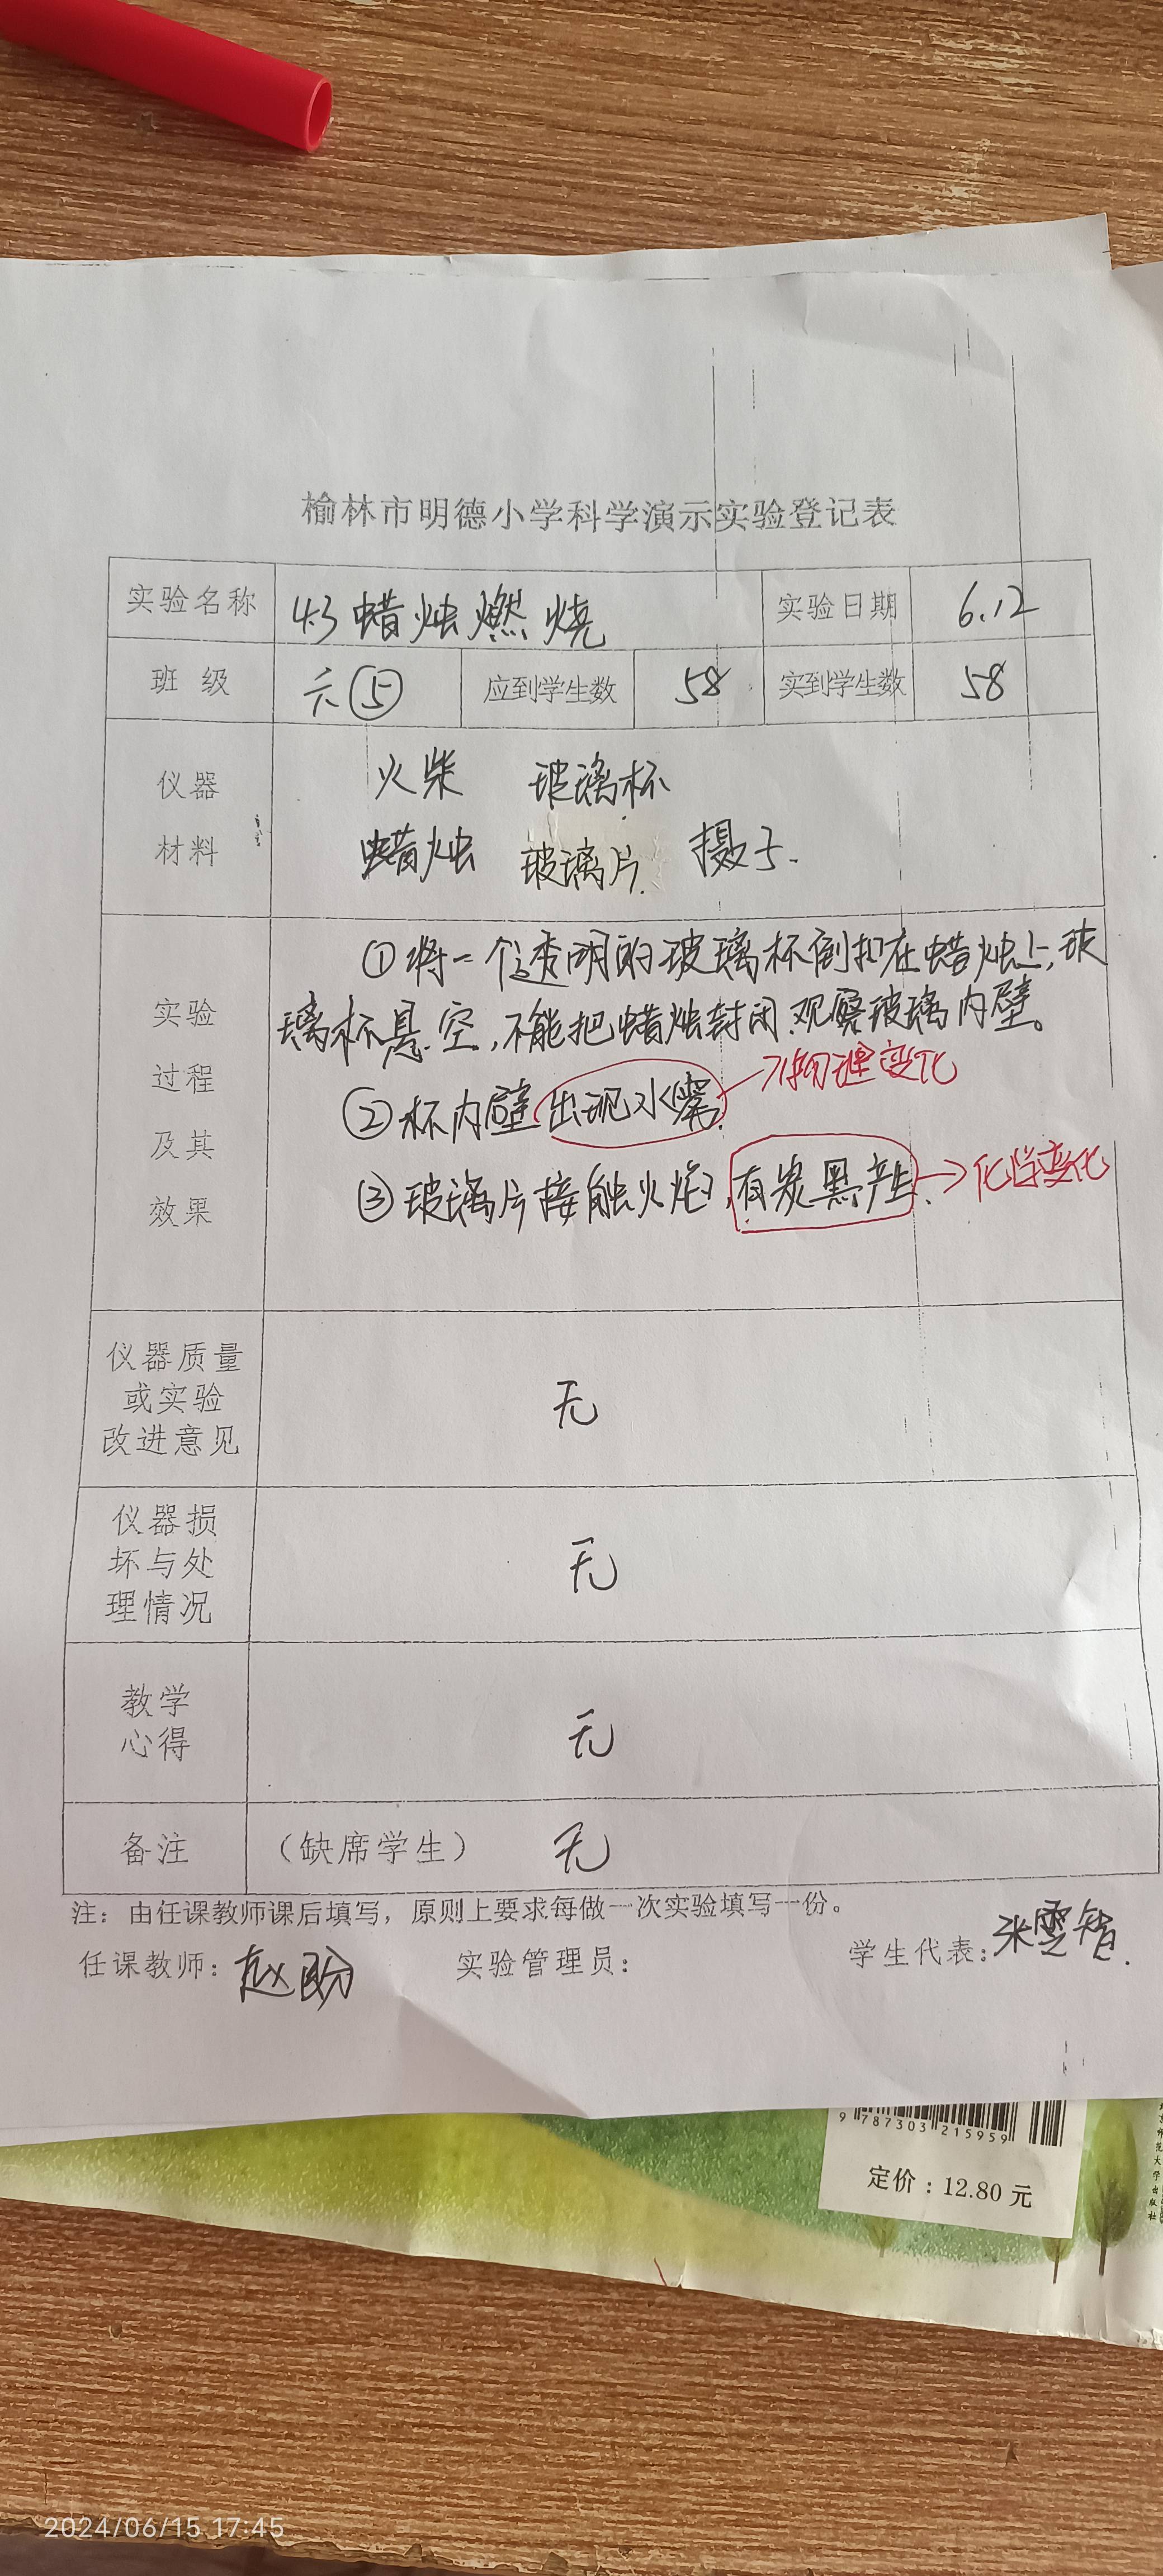 榆林市明德小学科学演示实验登记表
实验名称 4.3 蜡烛燃烧 实验日期 6.12
班级 六⑤ 应到学生数 58 实到学生数 58
仪器 火柴 玻璃杯
材料 蜡烛 玻璃片 摄子.
①将一个透明的玻璃杯倒扣在蜡烛上,玻
实验 璃杯悬空,不能把蜡烛封闭.观察玻璃内壁。
过程 ②杯内壁出现水雾. →物理变化
及其 ③玻璃片接触火焰,有炭黑产生. →化学变化
效果
仪器质量
或实验 无
改进意见
仪器损
坏与处 无
理情况
教学 无
心得
备注 (缺席学生) 无
注:由任课教师课后填写,原则上要求每做一次实验填写一份。
任课教师:赵盼 实验管理员: 学生代表:张雯智.
9 787303 215959
定价:12.80 元
2024/06/15 17:45